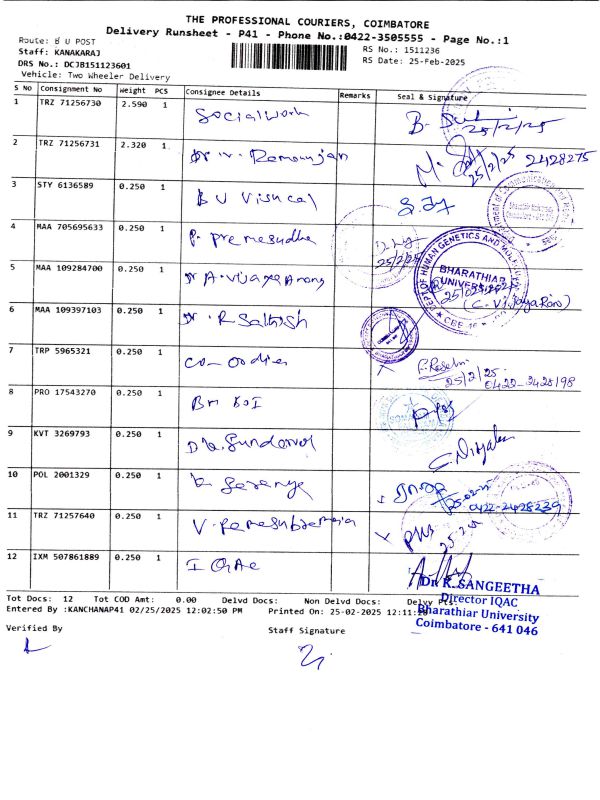 THE PROFESSIONAL COURIERS, COIMBATORE
Delivery Runsheet - P41 - Phone No.:0422-3505555 - Page No.:1
Route: B U POST
RS No.: 1511236
Staff: KANAKARAJ
RS Date: 25-Feb-2025
DRS No.: DCJB151123601
Vehicle: Two Wheeler Delivery
S No Consignment No Weight PCS Consignee Details Remarks Seal & Signature
1 TRZ 71256730 2.590 1 Socialwork B. 25/2/25
2 TRZ 71256731 2.320 1 Dr. Ramanujan M. 25/2/25 2428275
3 STY 6136589 0.250 1 B U Visucal
4 MAA 705695633 0.250 1 P. Premasudha 25/2/25
DEPT OF HUMAN GENETICS AND
BHARATHIAR
UNIVERSITY
5 MAA 109284700 0.250 1 Dr A. Vijaya Anand 25/02/2025
(C. Vijaya Rani)
6 MAA 109397103 0.250 1 Dr. R Sathish
7 TRP 5965321 0.250 1 co-ordi 25/2/25
0422-2428198
8 PRO 17543270 0.250 1
9 KVT 3269793 0.250 1 Sundaravel
10 POL 2001329 0.250 1 K. Saranya 25-02-25
0422-2428239
11 TRZ 71257640 0.250 1 V.
12 IXM 507861889 0.250 1 IQAC
Dr. R. SANGEETHA
Director IQAC
Bharathiar University
Coimbatore - 641 046
Tot Docs: 12 Tot COD Amt: 0.00 Delvd Docs: Non Delvd Docs: Delvy Pts:
Entered By :KANCHANAP41 02/25/2025 12:02:50 PM Printed On: 25-02-2025 12:11:28
Verified By Staff Signature